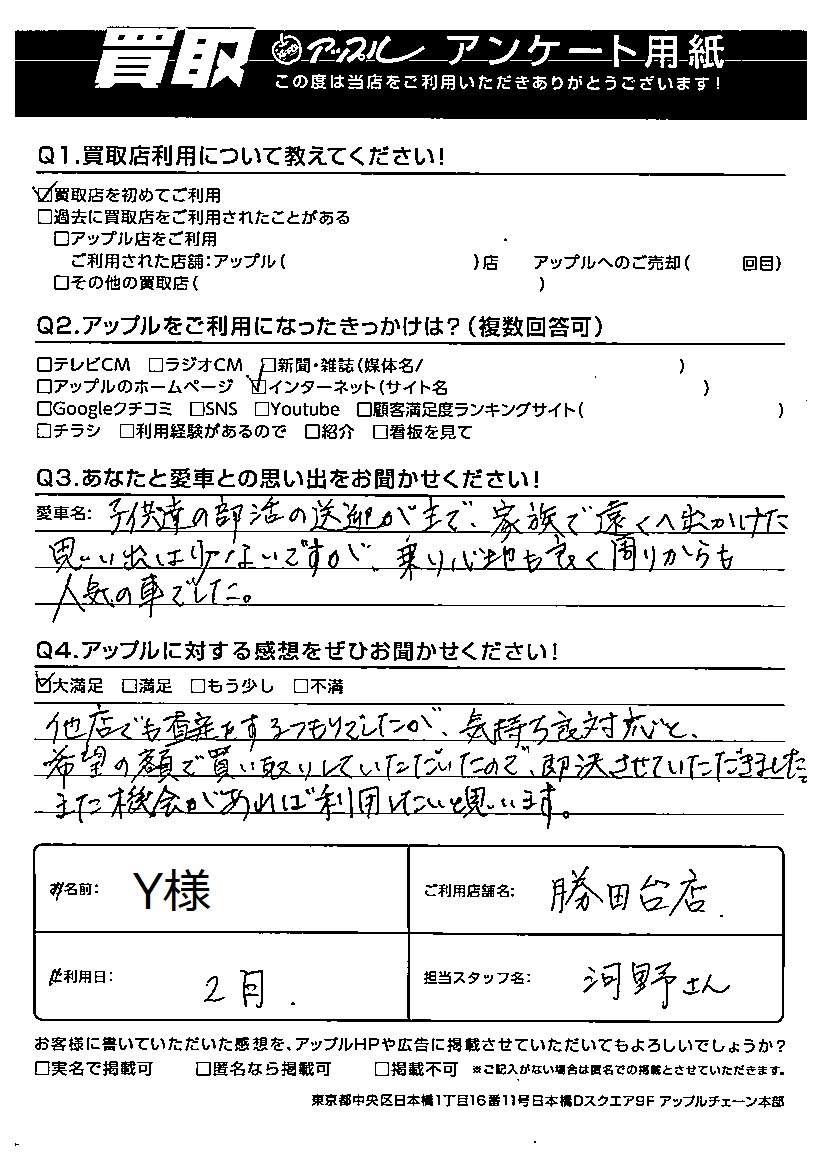 買取 アップル アンケート用紙
この度は当店をご利用いただきありがとうございます!
Q1.買取店利用について教えてください!
☑買取店を初めてご利用
□過去に買取店をご利用されたことがある
□アップル店をご利用
ご利用された店舗:アップル( )店 アップルへのご売却( 回目)
□その他の買取店( )
Q2.アップルをご利用になったきっかけは?(複数回答可)
□テレビCM □ラジオCM □新聞・雑誌(媒体名/ )
□アップルのホームページ ☑インターネット(サイト名 )
□Googleクチコミ □SNS □Youtube □顧客満足度ランキングサイト( )
□チラシ □利用経験があるので □紹介 □看板を見て
Q3.あなたと愛車との思い出をお聞かせください!
愛車名: 子供達の部活の送迎が主で、家族で遠くへ出かけた
思い出は少ないですが、乗り心地も良く周りからも
人気の車でした。
Q4.アップルに対する感想をぜひお聞かせください!
☑大満足 □満足 □もう少し □不満
他店でも査定をするつもりでしたが、気持ち良対応と、
希望の額で買い取りしていただいたので、即決させていただきました。
また機会があれば利用したいと思います。
お名前: Y様 ご利用店舗名: 勝田台店.
ご利用日: 2月. 担当スタッフ名: 河野さん
お客様に書いていただいた感想を、アップルHPや広告に掲載させていただいてもよろしいでしょうか?
□実名で掲載可 □匿名なら掲載可 □掲載不可 ※ご記入がない場合は匿名での掲載とさせていただきます。
東京都中央区日本橋1丁目16番11号日本橋Dスクエア9F アップルチェーン本部